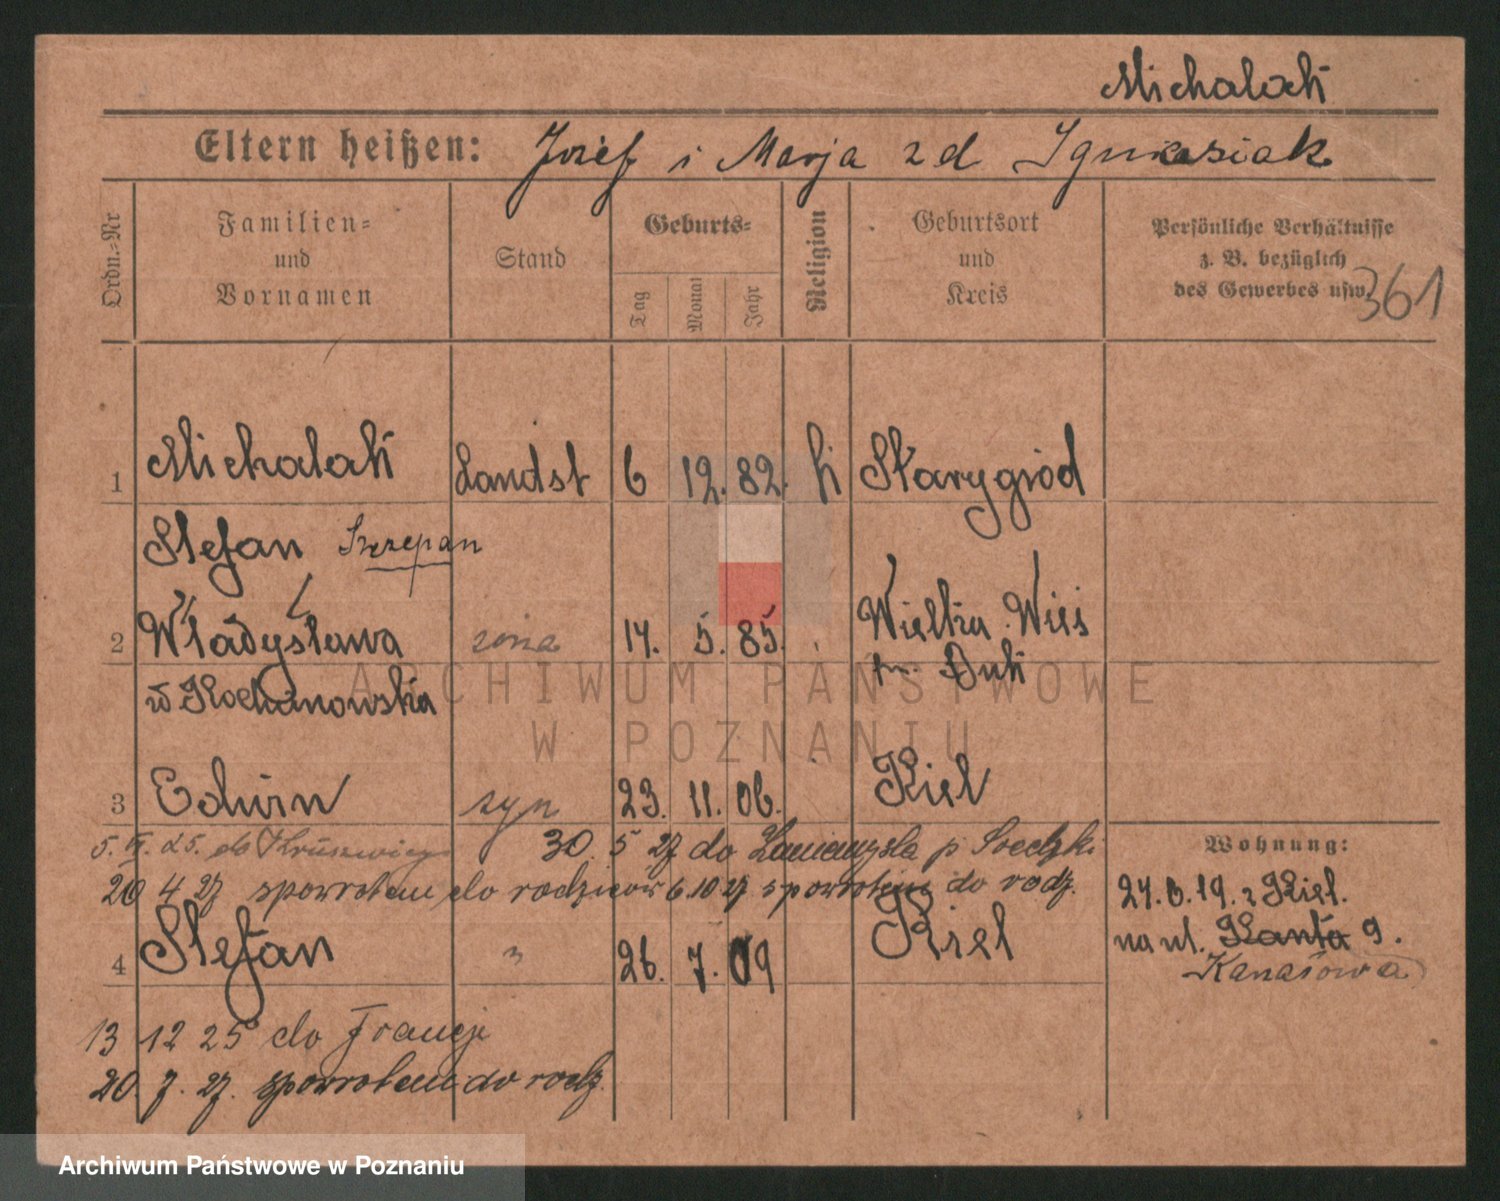 Michalak
Eltern heißen: Józef i Marja zd Ignasiak
Ordn.-Nr
Familien- und Vornamen
Stand
Geburts-
Tag
Monat
Jahr
Religion
Geburtsort und Kreis
Persönliche Verhältnisse
z. B. bezüglich
des Gewerbes usw.
361
1 Michalak Landst 6 12. 82. k Starygród
Stefan Szczepan
2 Władysława żona 14. 5. 85. Wielka Wieś
kr. Buk
w Kochanowska
3 Edwin syn 23. 11. 06. Kiel
5. 25. do Kruszwicy 30. 5 27 do p Średzki
20 4 27 spowrotem do rodziców 6.10 27 spowrotem do rodz.
Wohnung:
4 Stefan " 26. 7. 09 Kiel
24.6.19. z Kiel.
na ul. Kanta 9.
Kanałowa
13 12 25 do Francji
20. 7. 27. spowrotem do rodz.
ARCHIWUM PAŃSTWOWE
W POZNANIU
Archiwum Państwowe w Poznaniu